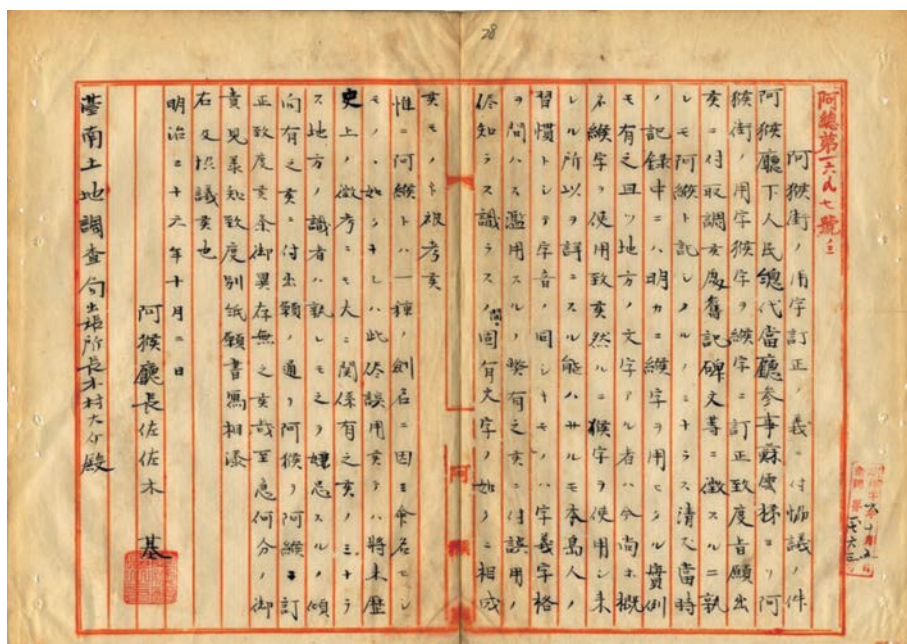 28
阿總第一六八七號ノ三
阿猴街ノ用字訂正ノ義ニ付協議ノ件
阿猴廳下人民總代當廳參事蘇雲梯ヨリ阿
猴街ノ用字猴字ヲ緱字ニ訂正致度旨願出
候ニ付取調候處舊記碑文等ニ徴スルニ孰
レモ阿緱ト記シタルノミナラス清人當時
ノ記録中ニハ明カニ緱字ヲ用ヒタル實例
モ有之且ツ地方ノ文字アル者ハ今尚ホ概
ネ緱字ヲ使用致候然ルニ猴字ヲ使用シ来
レル所以ヲ詳ニスル能ハサルモ本島人ノ
習慣トシテ字音ノ同シキモノハ字義字格
ヲ問ハス濫用スルノ弊有之候ニ付誤用ノ
侭知ラス識ラスノ間固有文字ノ如クニ相成
候モノト被考候
惟ニ阿緱トハ一種ノ創名ニ因ヨ命名セシ
モノヽ如シサレハ此侭誤用候テハ將来歴
史上ノ徴考ニモ大ニ関係有之候ノミナラ
ス地方ノ識者ハ孰レモ之ヲ嫌忌スルノ傾
向有之候ニ付出願ノ通リ阿猴ヲ阿緱ニ訂
正致度候条御異存無之候哉至急何分ノ御
貴見承知致度別紙願書寫相添
右及照議候也
明治三十六年十月二日
阿猴廳長佐佐木基
臺南土地調査局出張所長木村大介殿
阿猴